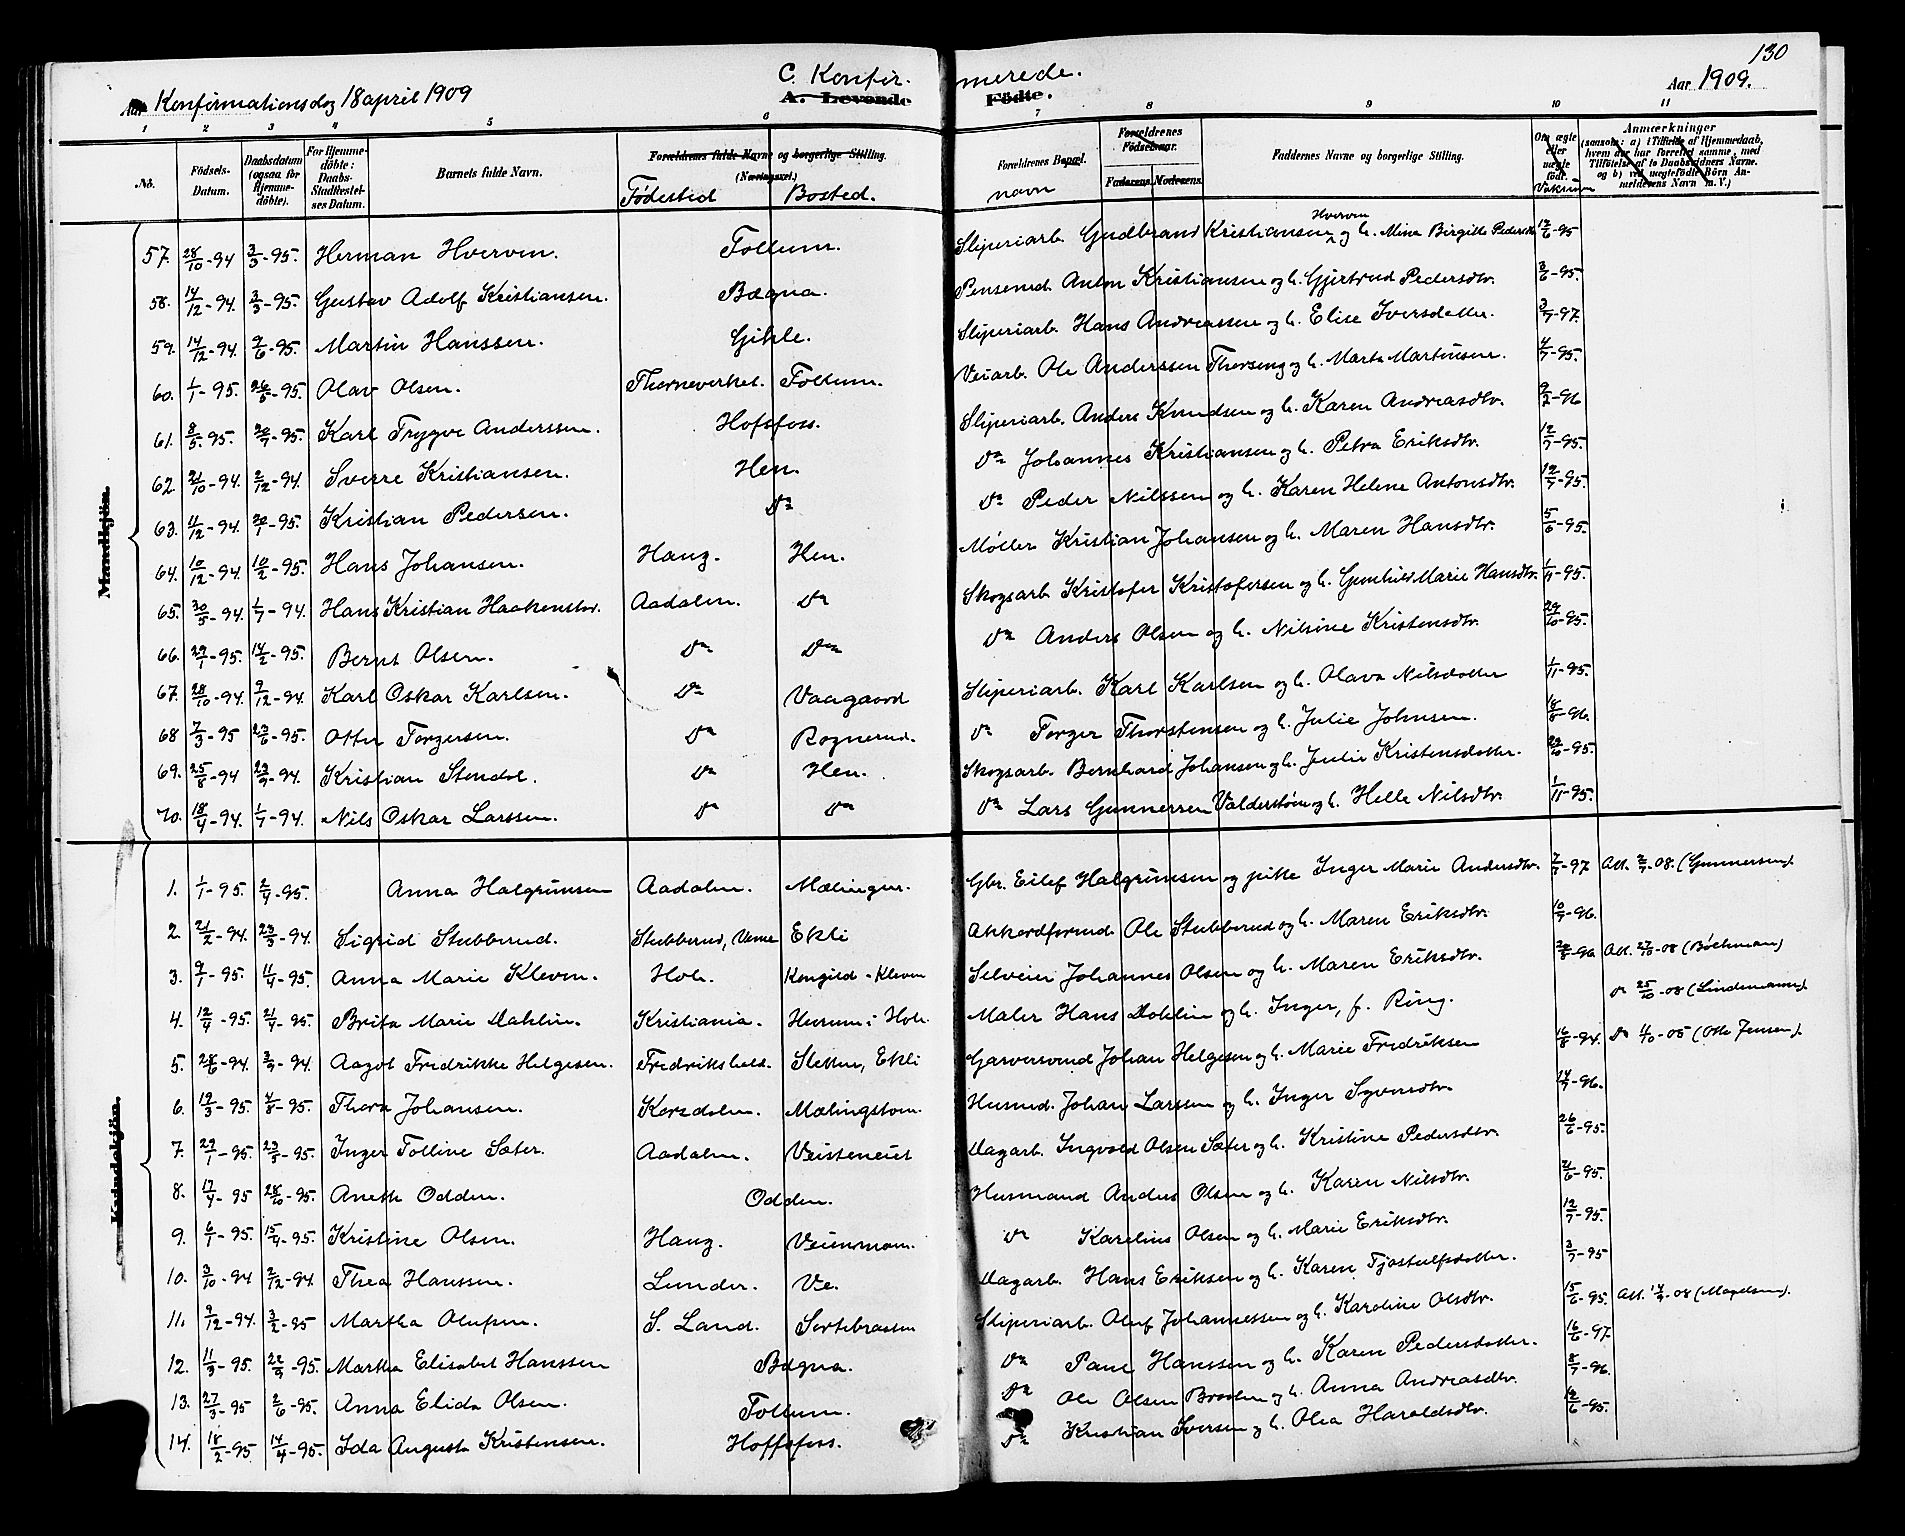 130
C. Konfirmerede.
Aar Konfirmationsdag 18 april 1909
A. Levende Födte.
Aar 1909.
1 2 3 4 5 6 7 8 9 10 11
No.
Födsels-Datum.
Daabsdatum (ogsaa for Hjemme-döbte).
For Hjemme-döbte: Daabs-Stadfæstel-ses Datum.
Barnets fulde Navn.
Forældrenes fulde Navne og borgerlige Stilling. (Næringsvei.)
Födested
Bosted.
Forældrenes Bopæl.
navn
Forældrenes Födselsaar.
Faderens. Moderens.
Faddernes Navne og borgerlige Stilling.
Om ægte eller uægte födt.
Anmærkninger
(saasom: a) i Tilfælde af Hjemmedaab, hvem der har forrettet samme, med Tilföielse af to Daabsvidners Navne. og b) ved uægtefödte Börn Anmelderens Navn m. V.)
Mandkjön.
57. 28/10-94 3/3-95. Herman Hverven. Follum. Sliperiarb. Gudbrand Kristiansen Hverven og h. Mina Birgitte Pedersdtr 12/6-95
58. 14/12-94. 3/3-95. Gustav Adolf Kristiansen. Bægna. Anton Kristiansen og h. Gjertrud Pedersdtr. 3/6-95.
59. 14/12-94. 9/6-95. Martin Hanssen. Gihle. Sliperiarb. Hans Andreassen og h. Elise Iversdatter. 3/7-97.
60. 1/1-95. 26/5-95. Olav Olsen. Follum. Veiarb. Ole Anderssen Thorseng og h. Marte 4/7-95.
61. 8/5-95. 20/7-95. Karl Trygve Anderssen. Hofsfoss. Sliperiarb. Anders Knudsen og h. Karen Andreasdtr. 9/2-96
62. 21/10-94. 2/12-94. Sverre Kristiansen. Hen. Do Johannes Kristiansen og h. Petra Eriksdtr. 12/7-95.
63. 11/12-94. 20/1-95. Kristian Pedersen. Do Do Peder Nilssen og h. Karen Helene Antonsdtr. 12/7-95.
64. 10/12-94. 10/2-95. Hans Johansen. Haug. Hen. Møller Kristian Johansen og h. Maren Hansdtr. 5/6-95.
65. 30/5-94. 1/7-94. Hans Kristian Aadalen. Do Skogsarb. Kristofer Kristofersen og h. Gunhild Marie Hansdtr.
66. 29/1-95. 14/2-95. Bernt Olsen. Do Do Do Anders Olsen og h. Nilsine Kristensdtr. 29/10-95.
67. 28/10-94. 9/12-94. Karl Oskar Karlsen. Do Vaagaard Sliperiarb. Karl Karlsen og h. Olava Nilsdatter 1/11-95.
68 7/3-95 23/6-95. Otter Torgersen. Do Rognerud. Do Torger Thorstensen og h. Julie Johnsen.
69. 25/8-94 23/9-94. Kristian Stendal. Do Hen. Skogsarb. Bernhard Johansen og h. Julie Kristensdatter.
70. 18/4-94. 1/7-94. Nils Oskar Larssen. Do Do Do Lars Gunnersen og h. Helle Nilsdtr. 1/11-95.
Kvindekjön.
1. 1/1-95. 2/4-95. Anna Halgrimsen Aadalen. Gbr. Eilef Halgrimsen og pike Inger Marie Andersdtr. 7/7-97 Att. (Gunnersen).
2. 21/2-94. 23/3-94. Sigrid Stubberud. Stubberud, Ekli Ole Stubberud og h. Maren Eriksdtr. 10/7-96.
3. 9/1-95. 11/4-95. Anna Marie Kleven. Hole. Kleven Selveier Johannes Olsen og h. Maren Eriksdtr. Att. 27/10-08
4. 12/4-95. 21/4-95. Brita Marie Dahlin. Kristiania. i Hole Maler Hans Dahlin og h. Inger, f. Ring. Do 25/10-08 (Lindemann).
5. 28/6-94 3/9-94. Aagot Fredrikke Helgesen. Fredrikshald. Sletten, Ekli Garversvend Johan Helgesen og h. Marie Fredriksen 16/8-94. Do 11/10-05 (Otto Jensen).
6. 19/3-95. 4/8-95. Thora Johansen. Korsdalen. Husmd. Johan Larssen og h. Inger Syversdtr. 14/7-96.
7. 29/1-95. 23/3-95. Inger Tolline Sæter. Aadalen. Veisteneiet Dagarb. Ingvald Olsen Sæter og h. Kristine Pedersdtr. 26/6-95.
8. 17/4-95 28/10-95. Anette Odden. Odden. Husmand Anders Olsen og h. Karen Nilsdtr.
9. 6/1-95. 15/4-95. Kristine Olsen. Haug. Do Karelius Olsen og h. Marie Eriksdtr. 12/7-95.
10. 3/10-94 2/12-94. Thea Hanssen. Lunder. Ve. Dagarb. Hans Eriksen og h. Karen Tjostulfsdatter. 3/7-95
11. 9/12-94. 3/2-95 Martha Olufsen. S. Land. Sortebraaten Sliperiarb. Oluf Johannessen og h. Karoline Olsdtr. 15/6-95. Att.
12. 11/3-95. 22/9-95. Martha Elisabet Hanssen Bægna. Do Paul Hanssen og h. Karen Pedersdatter. 16/6-97.
13. 27/3-95 2/6-95. Anna Elida Olsen. Follum. Do Ole Olsen Braaten og h. Anna Andreasdtr. 8/7-96.
14. 18/2-95 14/4-95. Ida Augusta Kristensen. Hoffsfoss. Do Kristian Iversen og h. Olea Haraldsdtr. 12/6-95.